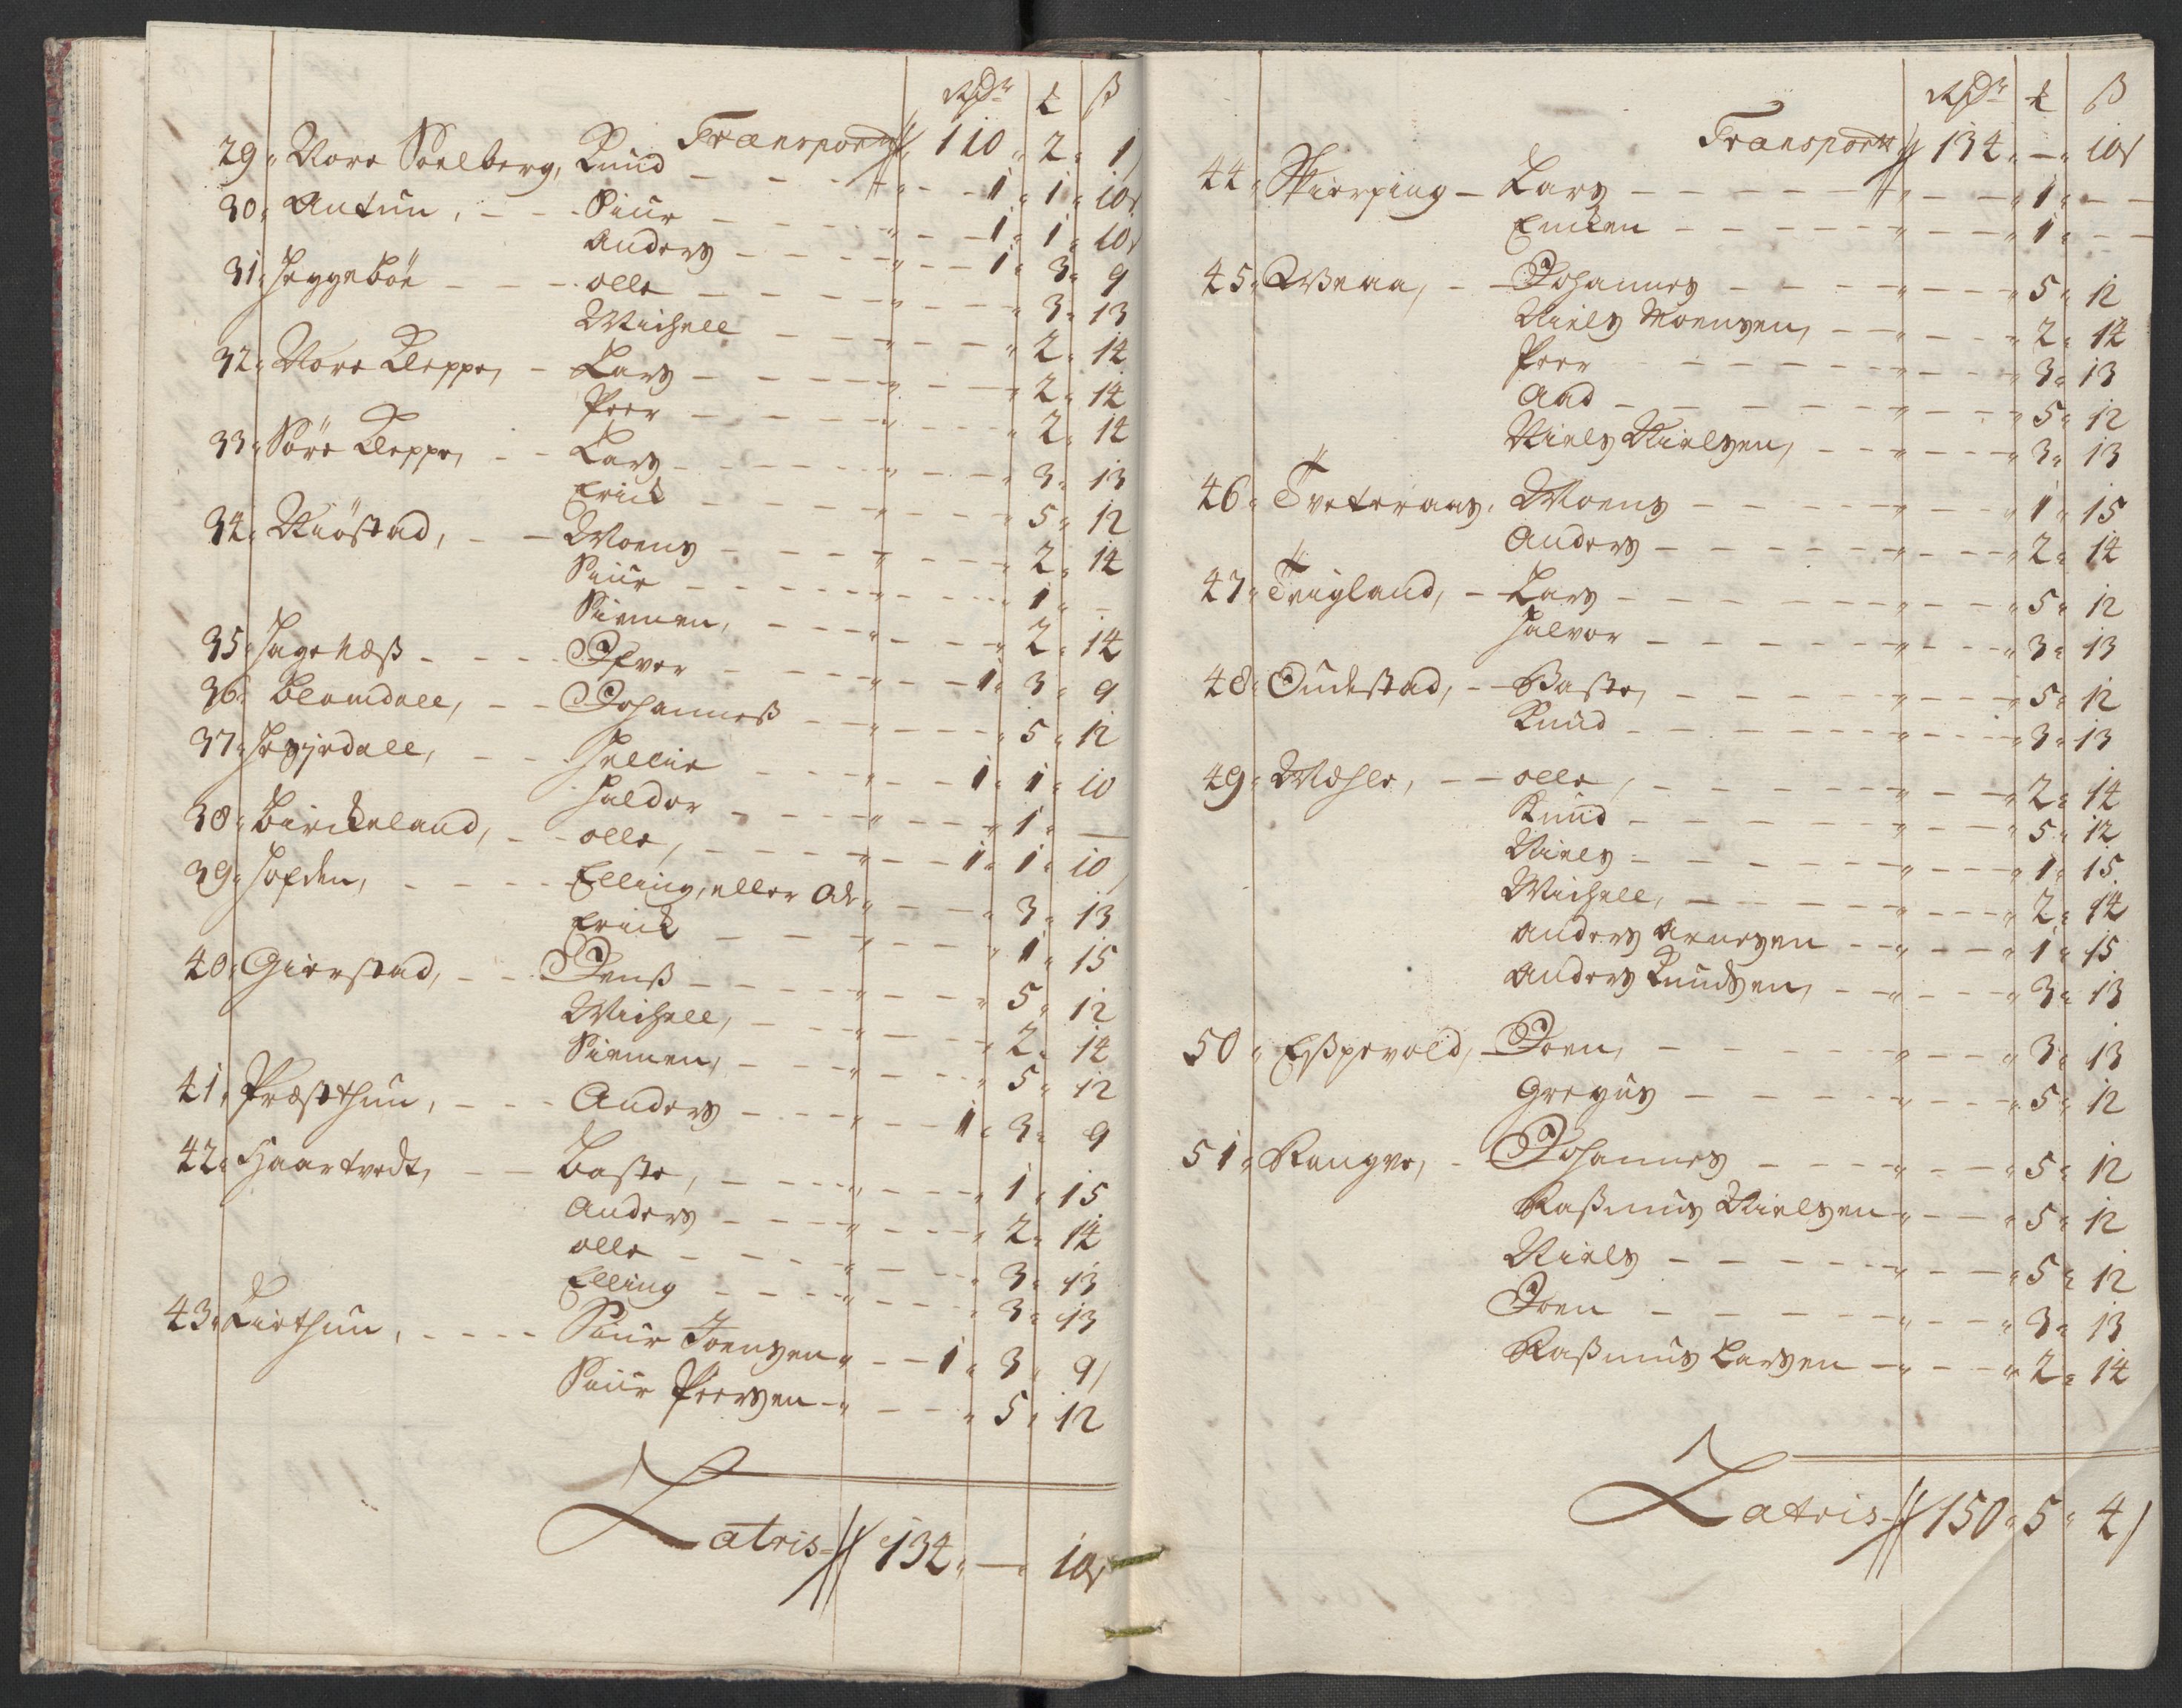 Rdr ƶ ß
Transport // 110 " 2 " 1
29 " Nore Sælberg, Knud - - - " - - 1 " 1 " 10
30 " Antun, - - Siur - - - " - - 1 " 1 " 10
Anders - - - " - - 1 " 3 " 9
31 " Heggebøe - - - olle - - - " - - " 3 " 13
Michell - - - " - - " 2 " 14
32 " Nore Kleppe, - Lars - - - " - - " 2 " 14
Peer - - - " - - " 2 " 14
33 " Søre Kleppe, - - Lars - - - " - - " 3 " 13
Erick - - - " - - " 5 " 12
34 " Røstad, - - Moens - - - " - - " 2 " 14
Siur - - - " - - " 1 " -
Siemen, - - - " - - " 2 " 14
35 " Hagenæß - - - Ifver - - - " - - 1 " 3 " 9
36 " Blomdall, - - Johanneß - - " - - " 5 " 12
37 " Hegredall, - - Hellie - - - " - - 1 " 1 " 10
Haldor - - - " - - " 1 " -
38 " Birckeland, - - olle, - - - " - - 1 " 1 " 10
39 " Hopden, - - - Elling, eller Ak " - - " 3 " 13
Erick - - - " - - " 1 " 15
40 " Gierstad, - - Jenß - - - " - - " 5 " 12
Michell, - - - " - - " 2 " 14
Siemen, - - - " - - " 5 " 12
41 " Præsthun, - - - Anders - - - " - - 1 " 3 " 9
42 " Haartvedt, - - Baste, - - - " - - " 1 " 15
Anders - - - " - - " 2 " 14
olle - - - " - - " 3 " 13
Elling - - - " - - " 3 " 13
43 " Lirthun, - - - - Siur Joensen " - - 1 " 3 " 9
Siur Peersen - " - - " 5 " 12
Latris // 134 " - " 10
Rdr ƶ ß
Transport // 134 " - " 10
44 " Skierping - Lars - - - " - - " 1 " - -
Enicken - - - " - - " 1 " - -
45 " Weaa, - - Johannes - - - " - - " 5 " 12
Niels Moensen, - - " - - " 2 " 14
Peer - - - " - - " 3 " 13
Aad - - - " - - " 5 " 12
Niels Nielsen, - - " - - " 3 " 13
46 " Tveteraas, Moens - - - " - - " 1 " 15
Anders - - - " - - " 2 " 14
47 " Teigland, - Lars - - - " - - " 5 " 12
Halvor - - - " - - " 3 " 13
48 " Oudestad, - - Baste, - - - " - - " 5 " 12
Knud - - - " - - " 3 " 13
49 " Mæhle, - - olle, - - - " - - " 2 " 14
Knud - - - " - - " 5 " 12
Niels - - - " - - " 1 " 15
Michell, - - - " - - " 2 " 14
Anders Arnesen - - " - - " 1 " 15
Anders Knudsen, - - " - - " 3 " 13
50 " Eßpevold, - Joen, - - - " - - " 3 " 13
Gregus - - - " - - " 5 " 12
51 " Rangve, - Johannes - - - " - - " 5 " 12
Raßmus Nielsen " - - " 5 " 12
Niels - - - " - - " 5 " 12
Joen - - - " - - " 3 " 13
Raßmus Larsen - " - - " 2 " 14
Latris // 150 " 5 " 4